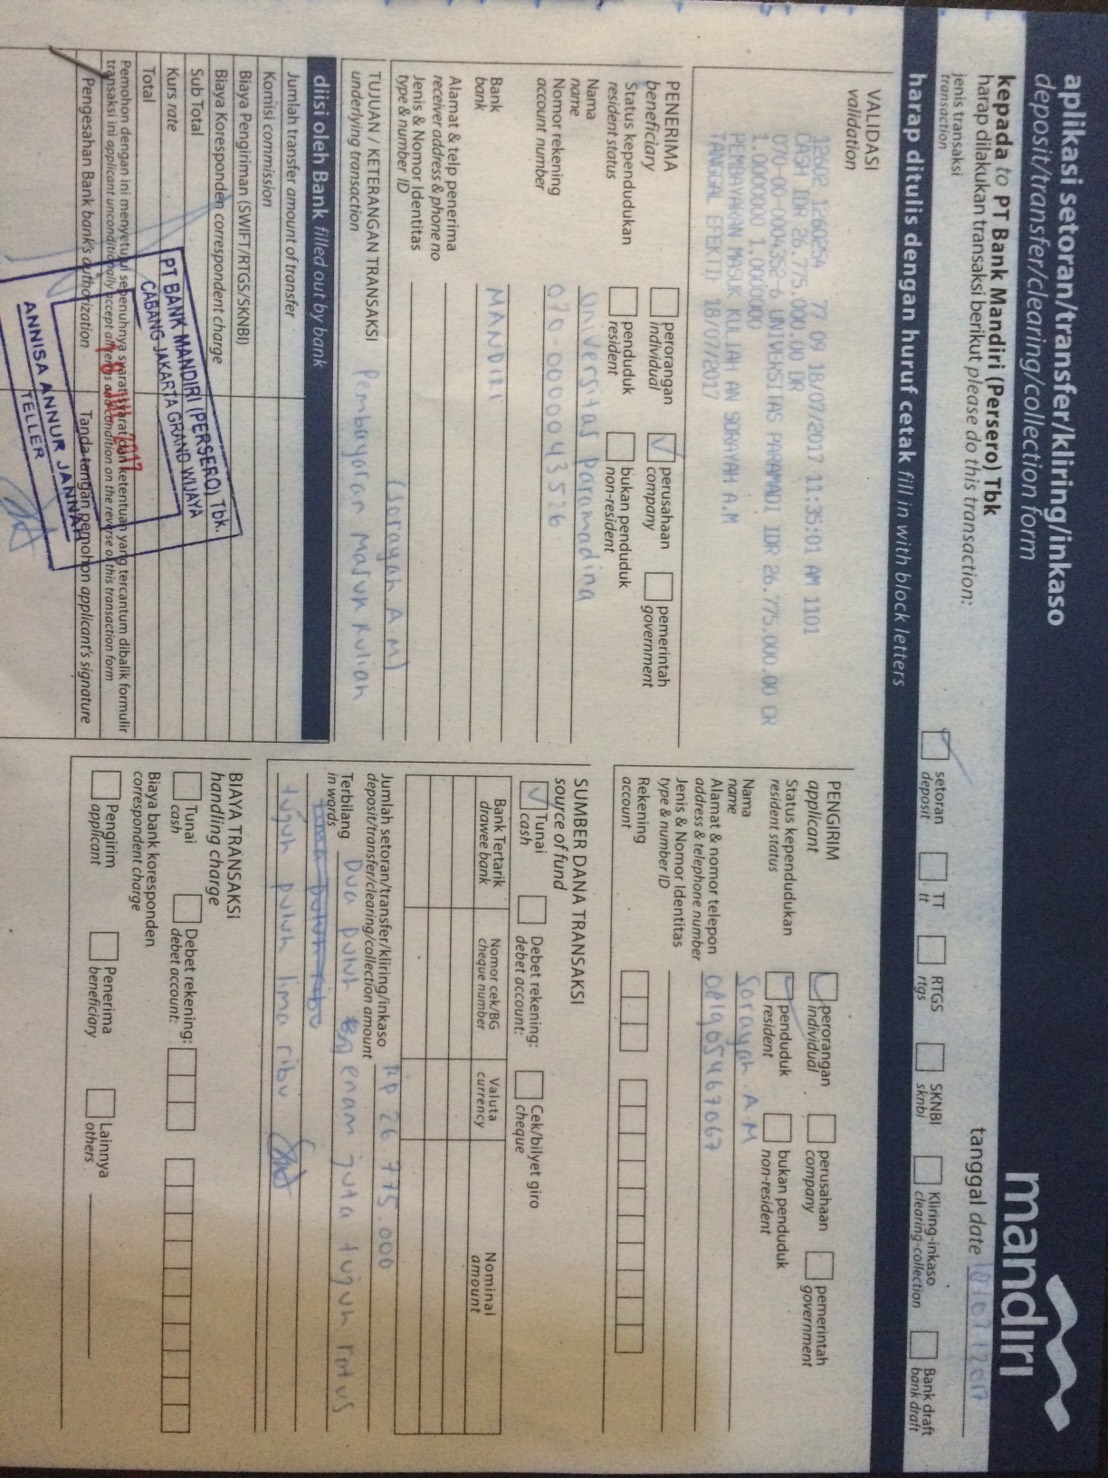 aplikasi setoran/transfer/kliring/inkaso
deposit/transfer/clearing/collection form
mandiri
kepada to PT Bank Mandiri (Persero) Tbk
harap dilakukan transaksi berikut please do this transaction:
tanggal date 18/07/2017
jenis transaksi
transaction
setoran
deposit
TT
tt
RTGS
rtgs
SKNBI
sknbi
Kliring-inkaso
clearing-collection
Bank draft
bank draft
harap ditulis dengan huruf cetak fill in with block letters
VALIDASI
validation
12602 1260254 77 09 18/07/2017 11:35:01 AM 1101
CASH IDR 26.775.000.00 DR
070-00-0004352-6 UNIVERSITAS PARAMADI IDR 26.775.000.00 CR
1.0000000 1.0000000
PEMBAYARAN MASUK KULIAH AN SORAYAH A.M
TANGGAL EFEKTIF 18/07/2017
PENERIMA
beneficiary
perorangan
individual
perusahaan
company
pemerintah
government
Status kependudukan
resident status
penduduk
resident
bukan penduduk
non-resident
Nama
name
Universitas Paramadina
Nomor rekening
account number
070-0000043526
Bank
bank
MANDIRI
Alamat & telp penerima
receiver address & phone no
Jenis & Nomor Identitas
type & number ID
(Sorayah A.M)
TUJUAN / KETERANGAN TRANSAKSI
underlying transaction
Pembayaran Masuk Kuliah
diisi oleh Bank filled out by bank
Jumlah transfer amount of transfer
Komisi commission
Biaya Pengiriman (SWIFT/RTGS/SKNBI)
Biaya Koresponden correspondent charge
Sub Total
Kurs rate
Total
Pemohon dengan ini menyetujui sepenuhnya syarat-syarat dan ketentuan yang tercantum dibalik formulir
transaksi ini applicant unconditionally accept all terms and condition on the reverse of this transaction form
Pengesahan Bank bank's authorization
Tanda tangan pemohon applicant's signature
PT BANK MANDIRI (PERSERO) Tbk.
CABANG JAKARTA GRAND WIJAYA
2017
ANNISA ANNUR JANNAH
TELLER
PENGIRIM
applicant
perorangan
individual
perusahaan
company
pemerintah
government
Status kependudukan
resident status
penduduk
resident
bukan penduduk
non-resident
Nama
name
Sorayah A.M
Alamat & nomor telepon
address & telephone number
081905467067
Jenis & Nomor Identitas
type & number ID
Rekening
account
SUMBER DANA TRANSAKSI
source of fund
Tunai
cash
Debet rekening:
debet account:
Cek/bilyet giro
cheque
Bank Tertarik
drawee bank
Nomor cek/BG
cheque number
Valuta
currency
Nominal
amount
Jumlah setoran/transfer/kliring/inkaso
deposit/transfer/clearing/collection amount
Rp 26.775.000
Terbilang
in words
Dua puluh enam juta tujuh ratus
lima puluh ribu
tujuh puluh lima ribu
BIAYA TRANSAKSI
handling charge
Tunai
cash
Debet rekening:
debet account:
Biaya bank koresponden
correspondent charge
Pengirim
applicant
Penerima
beneficiary
Lainnya
others